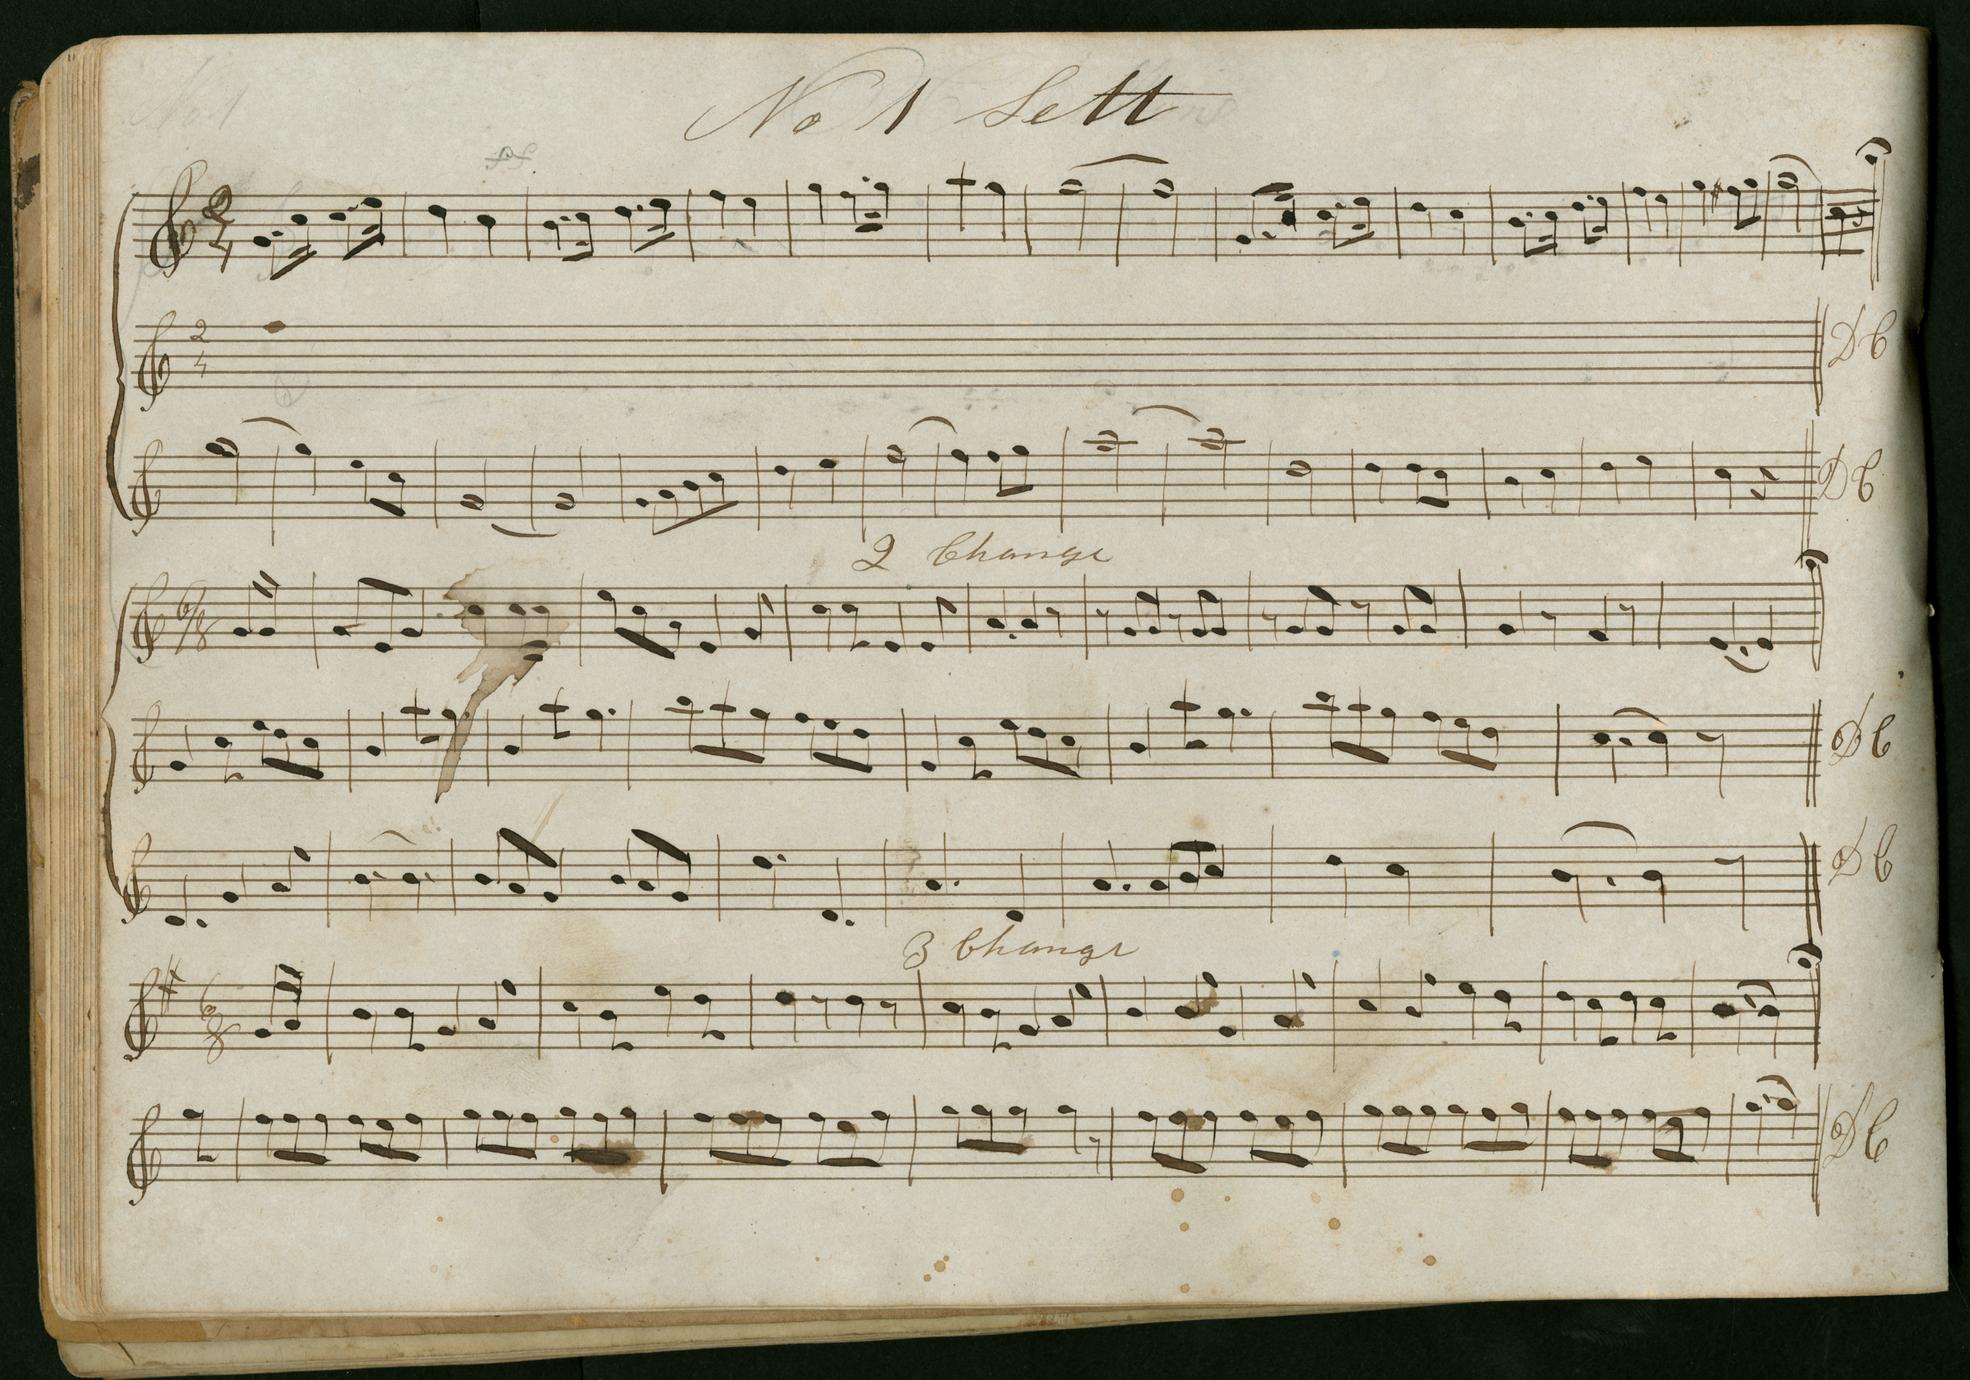 No 1
No 1 Sett
2 4
2 4 D C
D C
2 Change
6/8
D C
D C
3 Change
6/8
D C